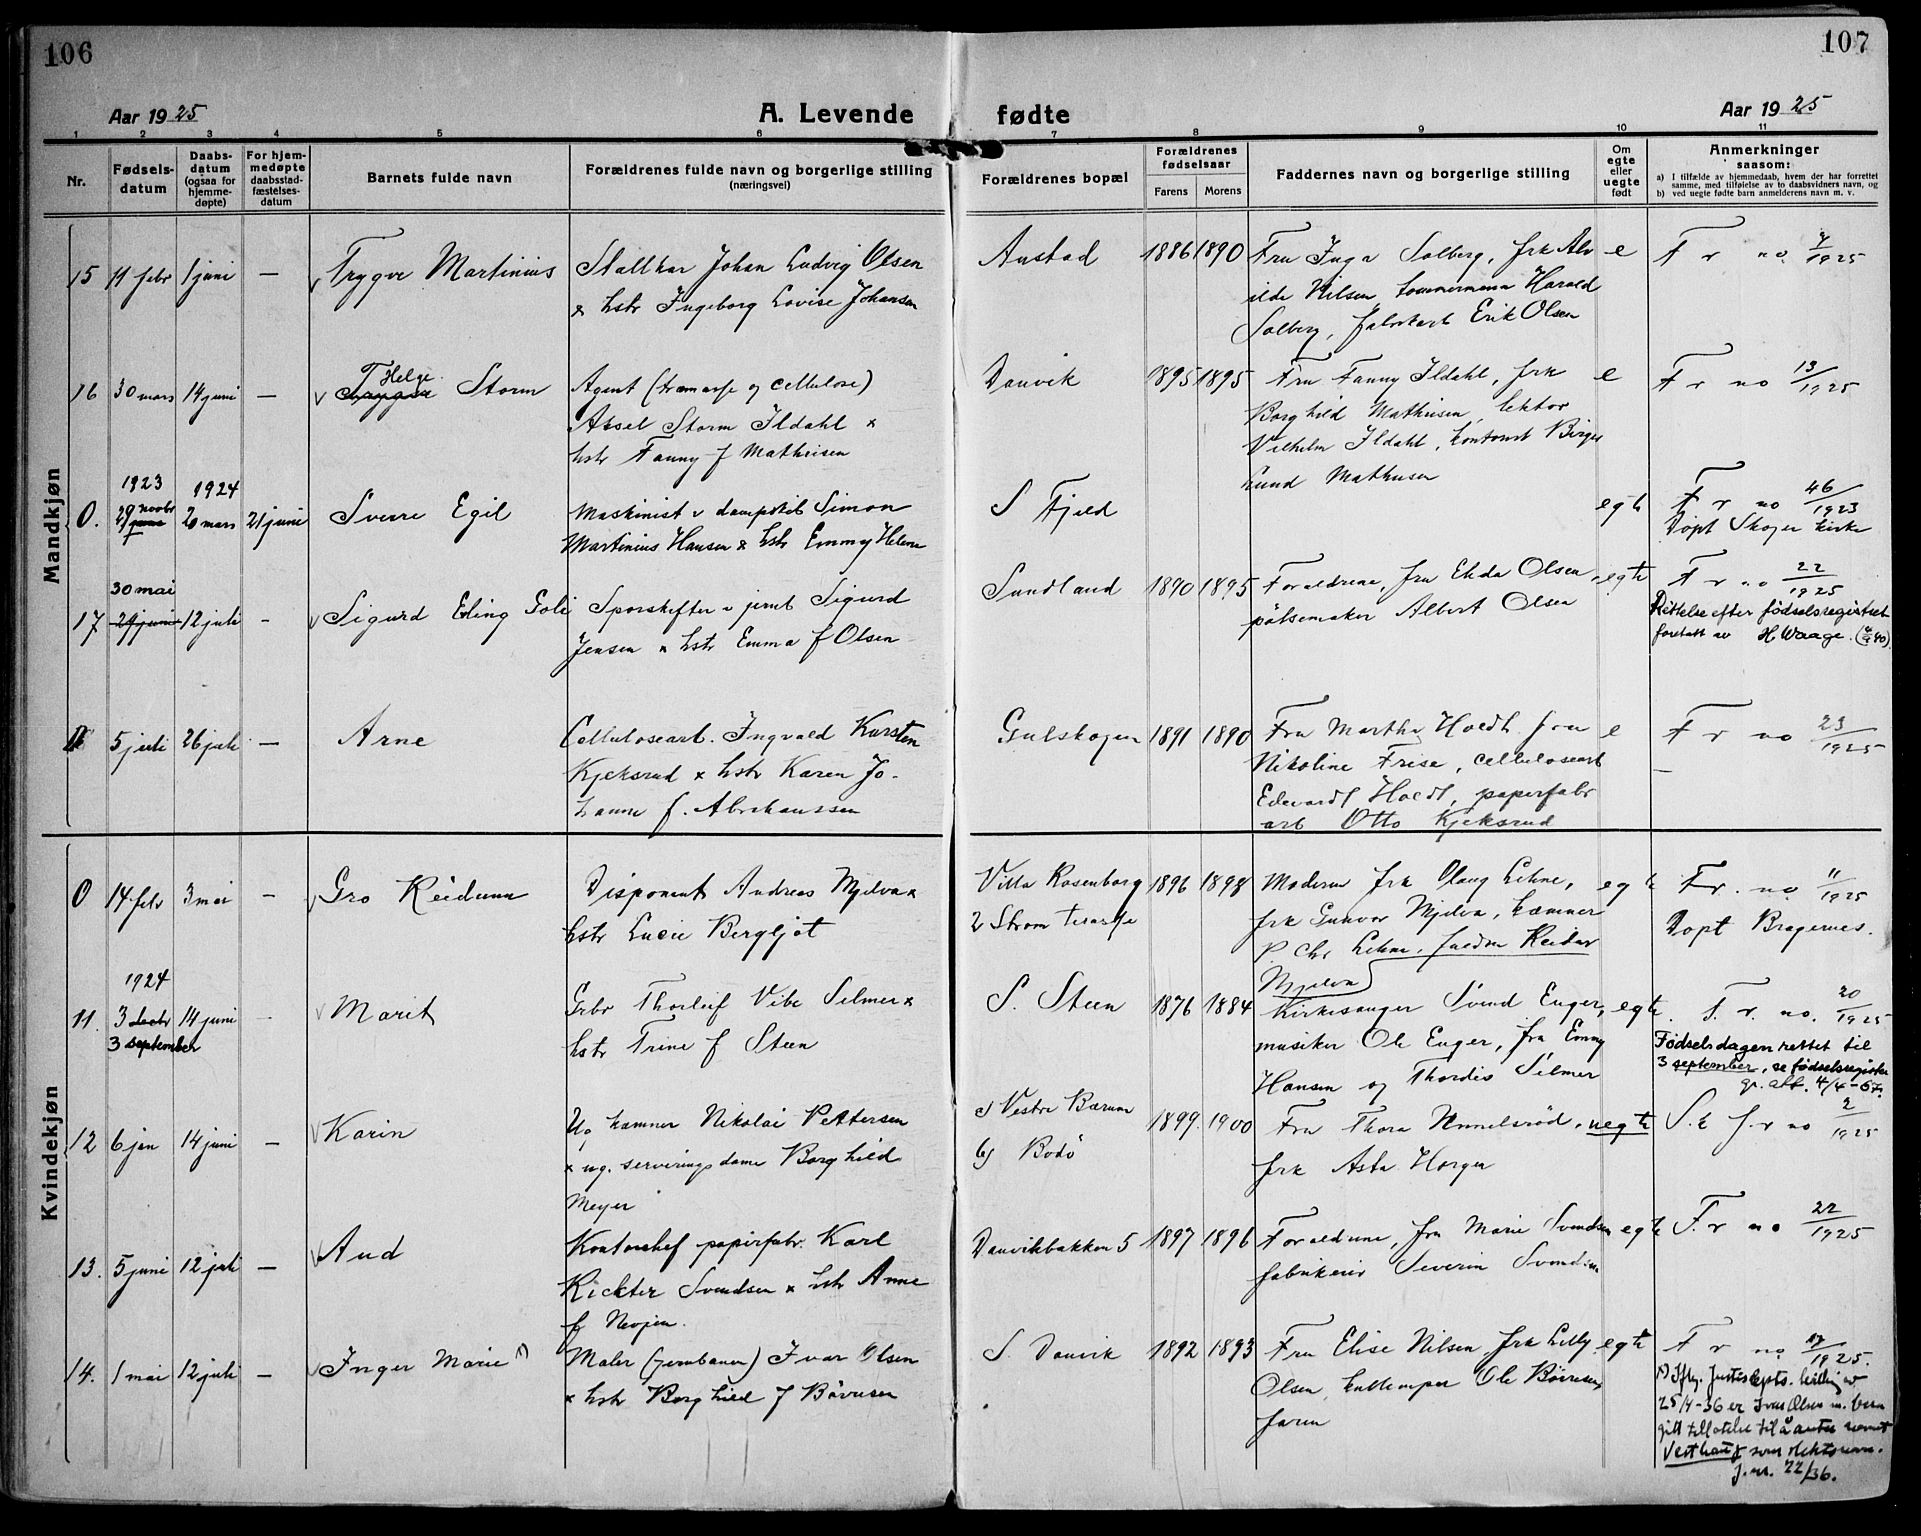 106
107
Aar 1925
A. Levende fødte
Aar 1925
1 2 3 4 5 6 7 8 9 10 11
Nr.
Fødsels-
datum
Daabs-
datum
(ogsaa for
hjemme-
døpte)
For hjem-
medøpte
daabsstad-
fæstelses-
datum
Barnets fulde navn
Forældrenes fulde navn og borgerlige stilling
(næringsvei)
Forældrenes bopæl
Forældrenes
fødselsaar
Farens
Morens
Faddernes navn og borgerlige stilling
Om
egte
eller
uegte
født
Anmerkninger
saasom:
a) I tilfælde av hjemmedaab, hvem der har forrettet
samme, med tilføielse av to daabsvidners navn, og
b) ved uegte fødte barn anmelderens navn m. v.
Mandkjøn
15 11 febr 1 juni — Trygve Martinius
Stallkar Johan Ludvig Olsen
x hstr Ingeborg Lovise Johansen
Austad 1886 1890
Fru Inga Solberg, frk Alv
ilde Nilsen, tømmermann Harald
Solberg, fabrikarb Erik Olsen
e
F r no 7/1925
16 30 mars 14 juni — Helge
Trygve Storm
Agent (træmasse og cellulose)
Aksel Storm Ildahl x
hstr Fanny f Mathisen
Danvik 1895 1895
Fru Fanny Ildahl, frk
Borghild Mathisen, lektor
Vilhelm Ildahl, kontorist Birger
Lund Mathisen
e
F r no 13/1925
1923 1924
0. 29 novbr juni 20 mars 21 juni Sverre Egil
Maskinist v dampskib Simon
Martinius Hansen x hstr Emmy Helene
S Fjeld
egte
F r no 46/1923
Døpt Skoger kirke
30 mai
17 29 juni 12 juli - Sigurd Erling Goli
Sporskifter v jernb Sigurd
Jensen x hstr Emma f Olsen
Sundland 1890 1895
Forældrene, fru Elida Olsen,
pølsemaker Albert Olsen
egte
F r no 22/1925
Rettelse efter fødselsregistret
foretatt av H Waage.
5 juli 26 juli — Arne
Cellulosearb. Ingvald Karsten
Kjeksrud x hstr Karen Jo-
hanne f. Abrahamssen
Gulskogen 1891 1890
Fru Martha Holdt fru
Nikoline Frese, cellulosearb
Edevardt Holdt, papirfabr
arb Otto Kjeksrud
e
F r no 23/1925
—
Kvindekjøn
0 14 febr 3 mai - Gro Reidunn
Disponent Andreas Mjelva x
hstr Lucie Bergljot
Villa Rosenborg
2 Strøm terasse
1896 1898
Moderen frk Olaug Lehne,
frk Gunvor Mjelva, kæmner
P. Chr Lehne, faldm Reidar
Mjelva
egte
F r. no 11/1925
Døpt Bragernes.
1924
11. 3 decbr 14 juni
3 september
Marit
Grbr Thorleif Vibe Selmer x
hstr Trine f Steen
S. Steen 1876 1884
Kirkesanger Svend Enger,
musiker Ole Enger, fru Emmy
Hansen og Thordis Selmer
egte
F. r. no. 20/1925
Fødselsdagen rettet til
3 september, se fødselsregister
12 6 jan 14 juni — Karin
Ug hamner Nikolai Pettersen
x ug. serveringsdame Borghild
Meyer
a) Vestre Bærum
b) Bodø
1899. 1900
frk Asta Horgen
uegte
S. k f. r no 2/1925
13. 5 juni 12 juli — Aud
Kontorchef papirfabr. Karl
Rickter Svendsen x hstr Anne
f Nevjen.
Danvikbakken 5 1897 1896
Forældrene, fru Marie Svendsen
fabrikeier Severin Svendsen
egte
F. r no 22/1925
14. 1 mai 12 juli — Inger Marie 1)
Maler (jernbanen) Ivar Olsen
x hstr Borghild f Børresen
S. Danvik 1892 1893
Fru Elise Nilsen, frk Lilly
Olsen, Ole Børresen,
faren
egte
F r no 17/1925.
1) Iflg. Justisdepts. bevilling av
25/4-36 er Ivar Olsen m. barn
gitt tillatelse til å anta navnet
Vesthaug som slektsnavn.
J.nr. 22/36.